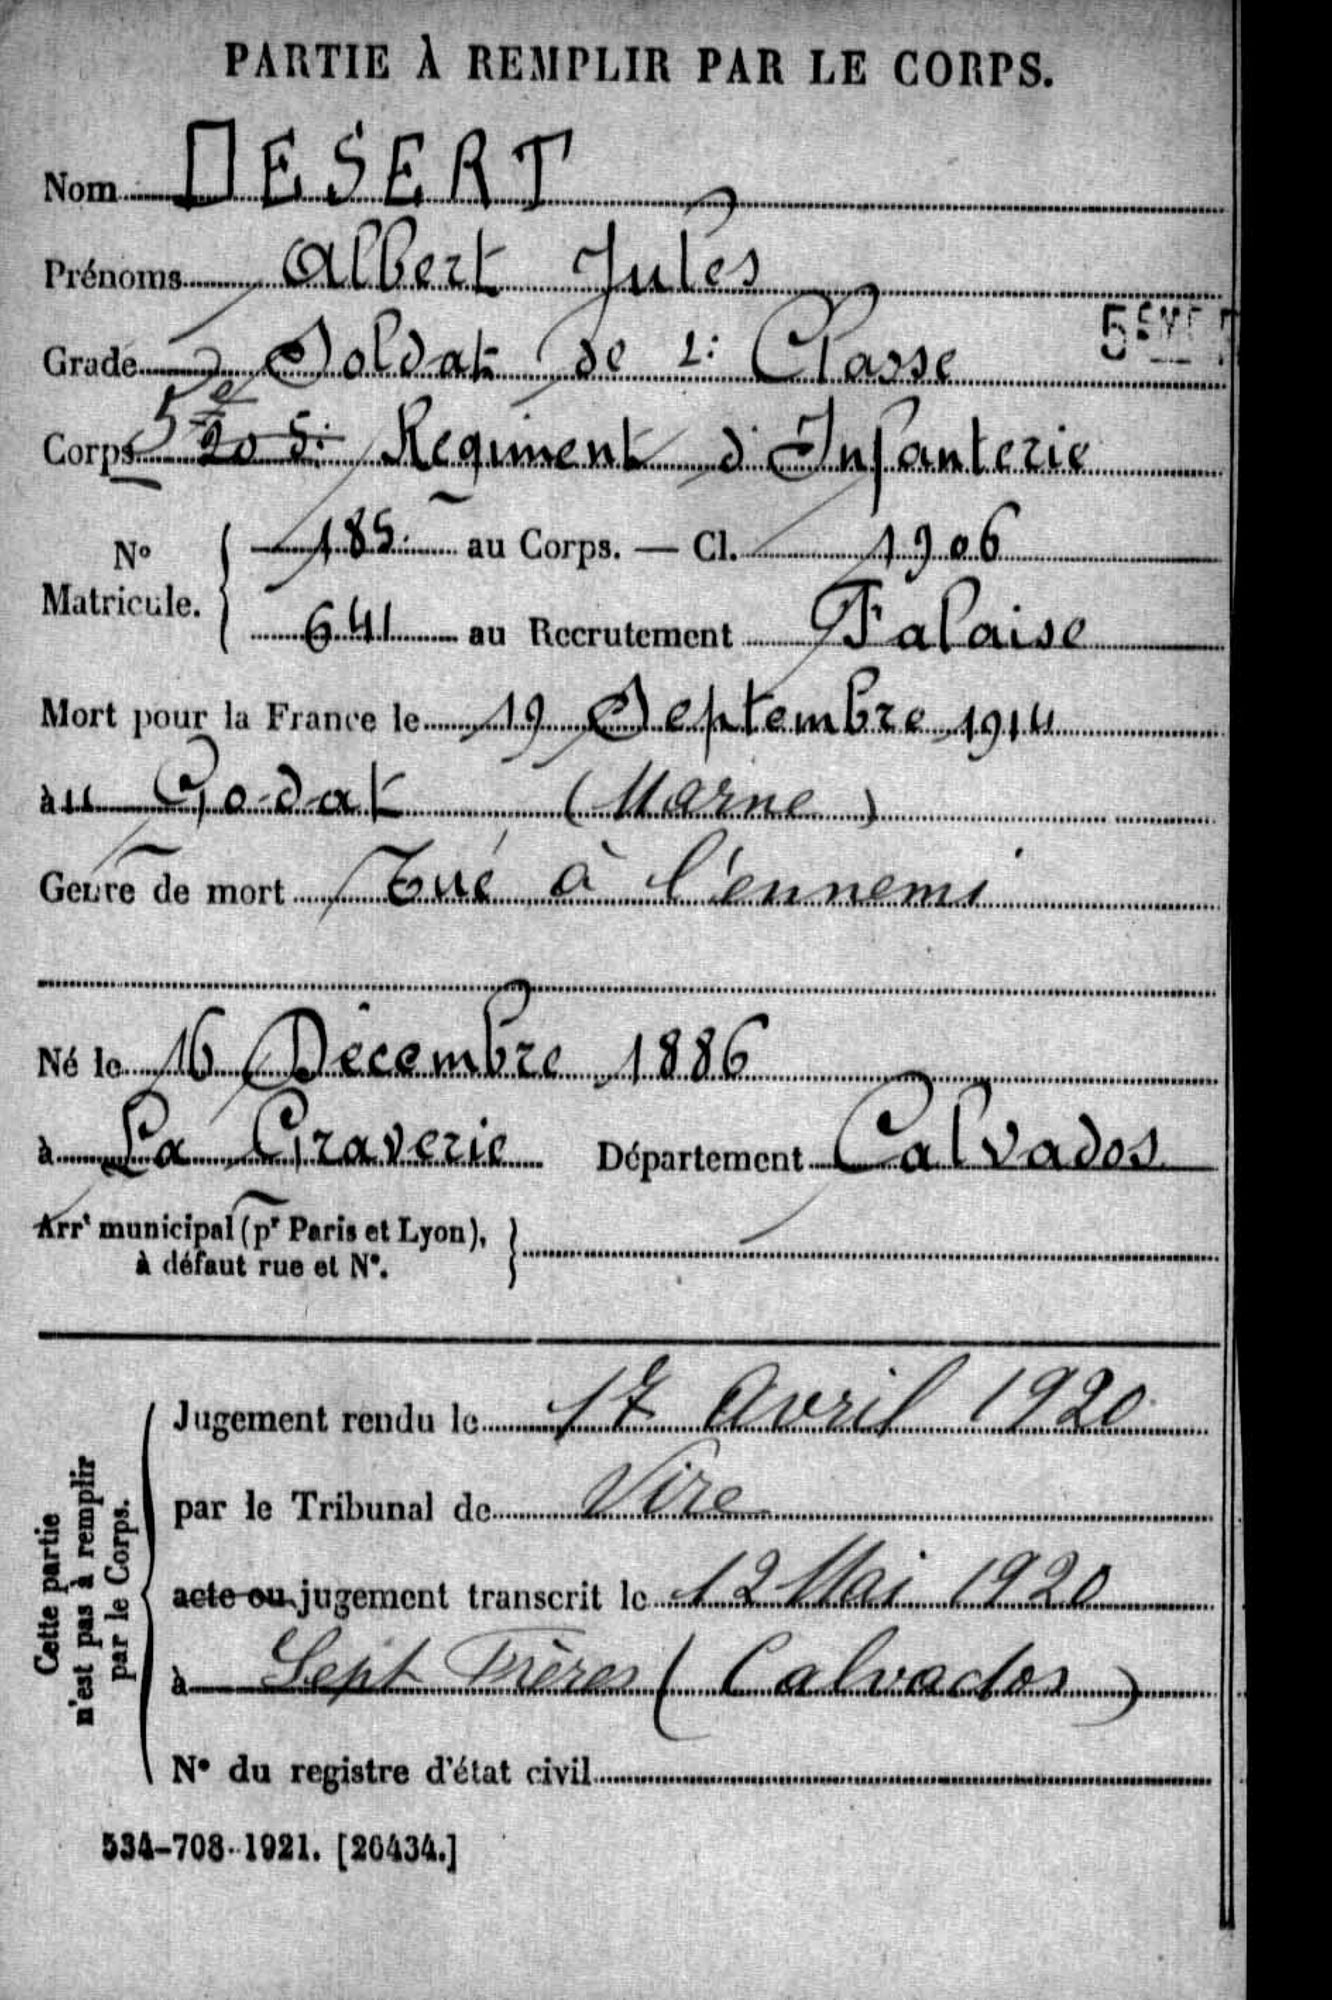 PARTIE À REMPLIR PAR LE CORPS.
Nom DESERT
Prénoms Albert Jules
Grade Soldat de 2e Classe
5EME
Corps 5e 205e Régiment d'Infanterie
No Matricule. 185 au Corps. — Cl. 1906
641 au Recrutement Falaise
Mort pour la France le 19 Septembre 1914
au Godat (Marne)
Genre de mort Tué à l'ennemi
Né le 16 Décembre 1886
à La Graverie Département Calvados
Arrt municipal (pr Paris et Lyon),
à défaut rue et No.
Cette partie
n'est pas à remplir
par le Corps.
Jugement rendu le 17 Avril 1920
par le Tribunal de Vire
acte ou jugement transcrit le 12 Mai 1920
à Sept Frères (Calvados)
No du registre d'état civil
534-708-1921. [26434.]